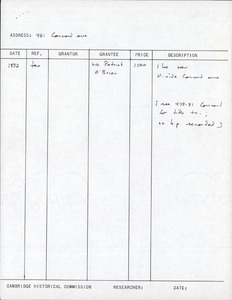 ADDRESS: 461 Concord Ave
DATE REF. GRANTOR GRANTEE PRICE DESCRIPTION
1852 tax hrs Patrick 1500 1 hse new
O'Brien N. side Concord Ave
[see 479-81 Concord
for title
no b.p. recorded]
CAMBRIDGE HISTORICAL COMMISSION RESEARCHER: DATE: